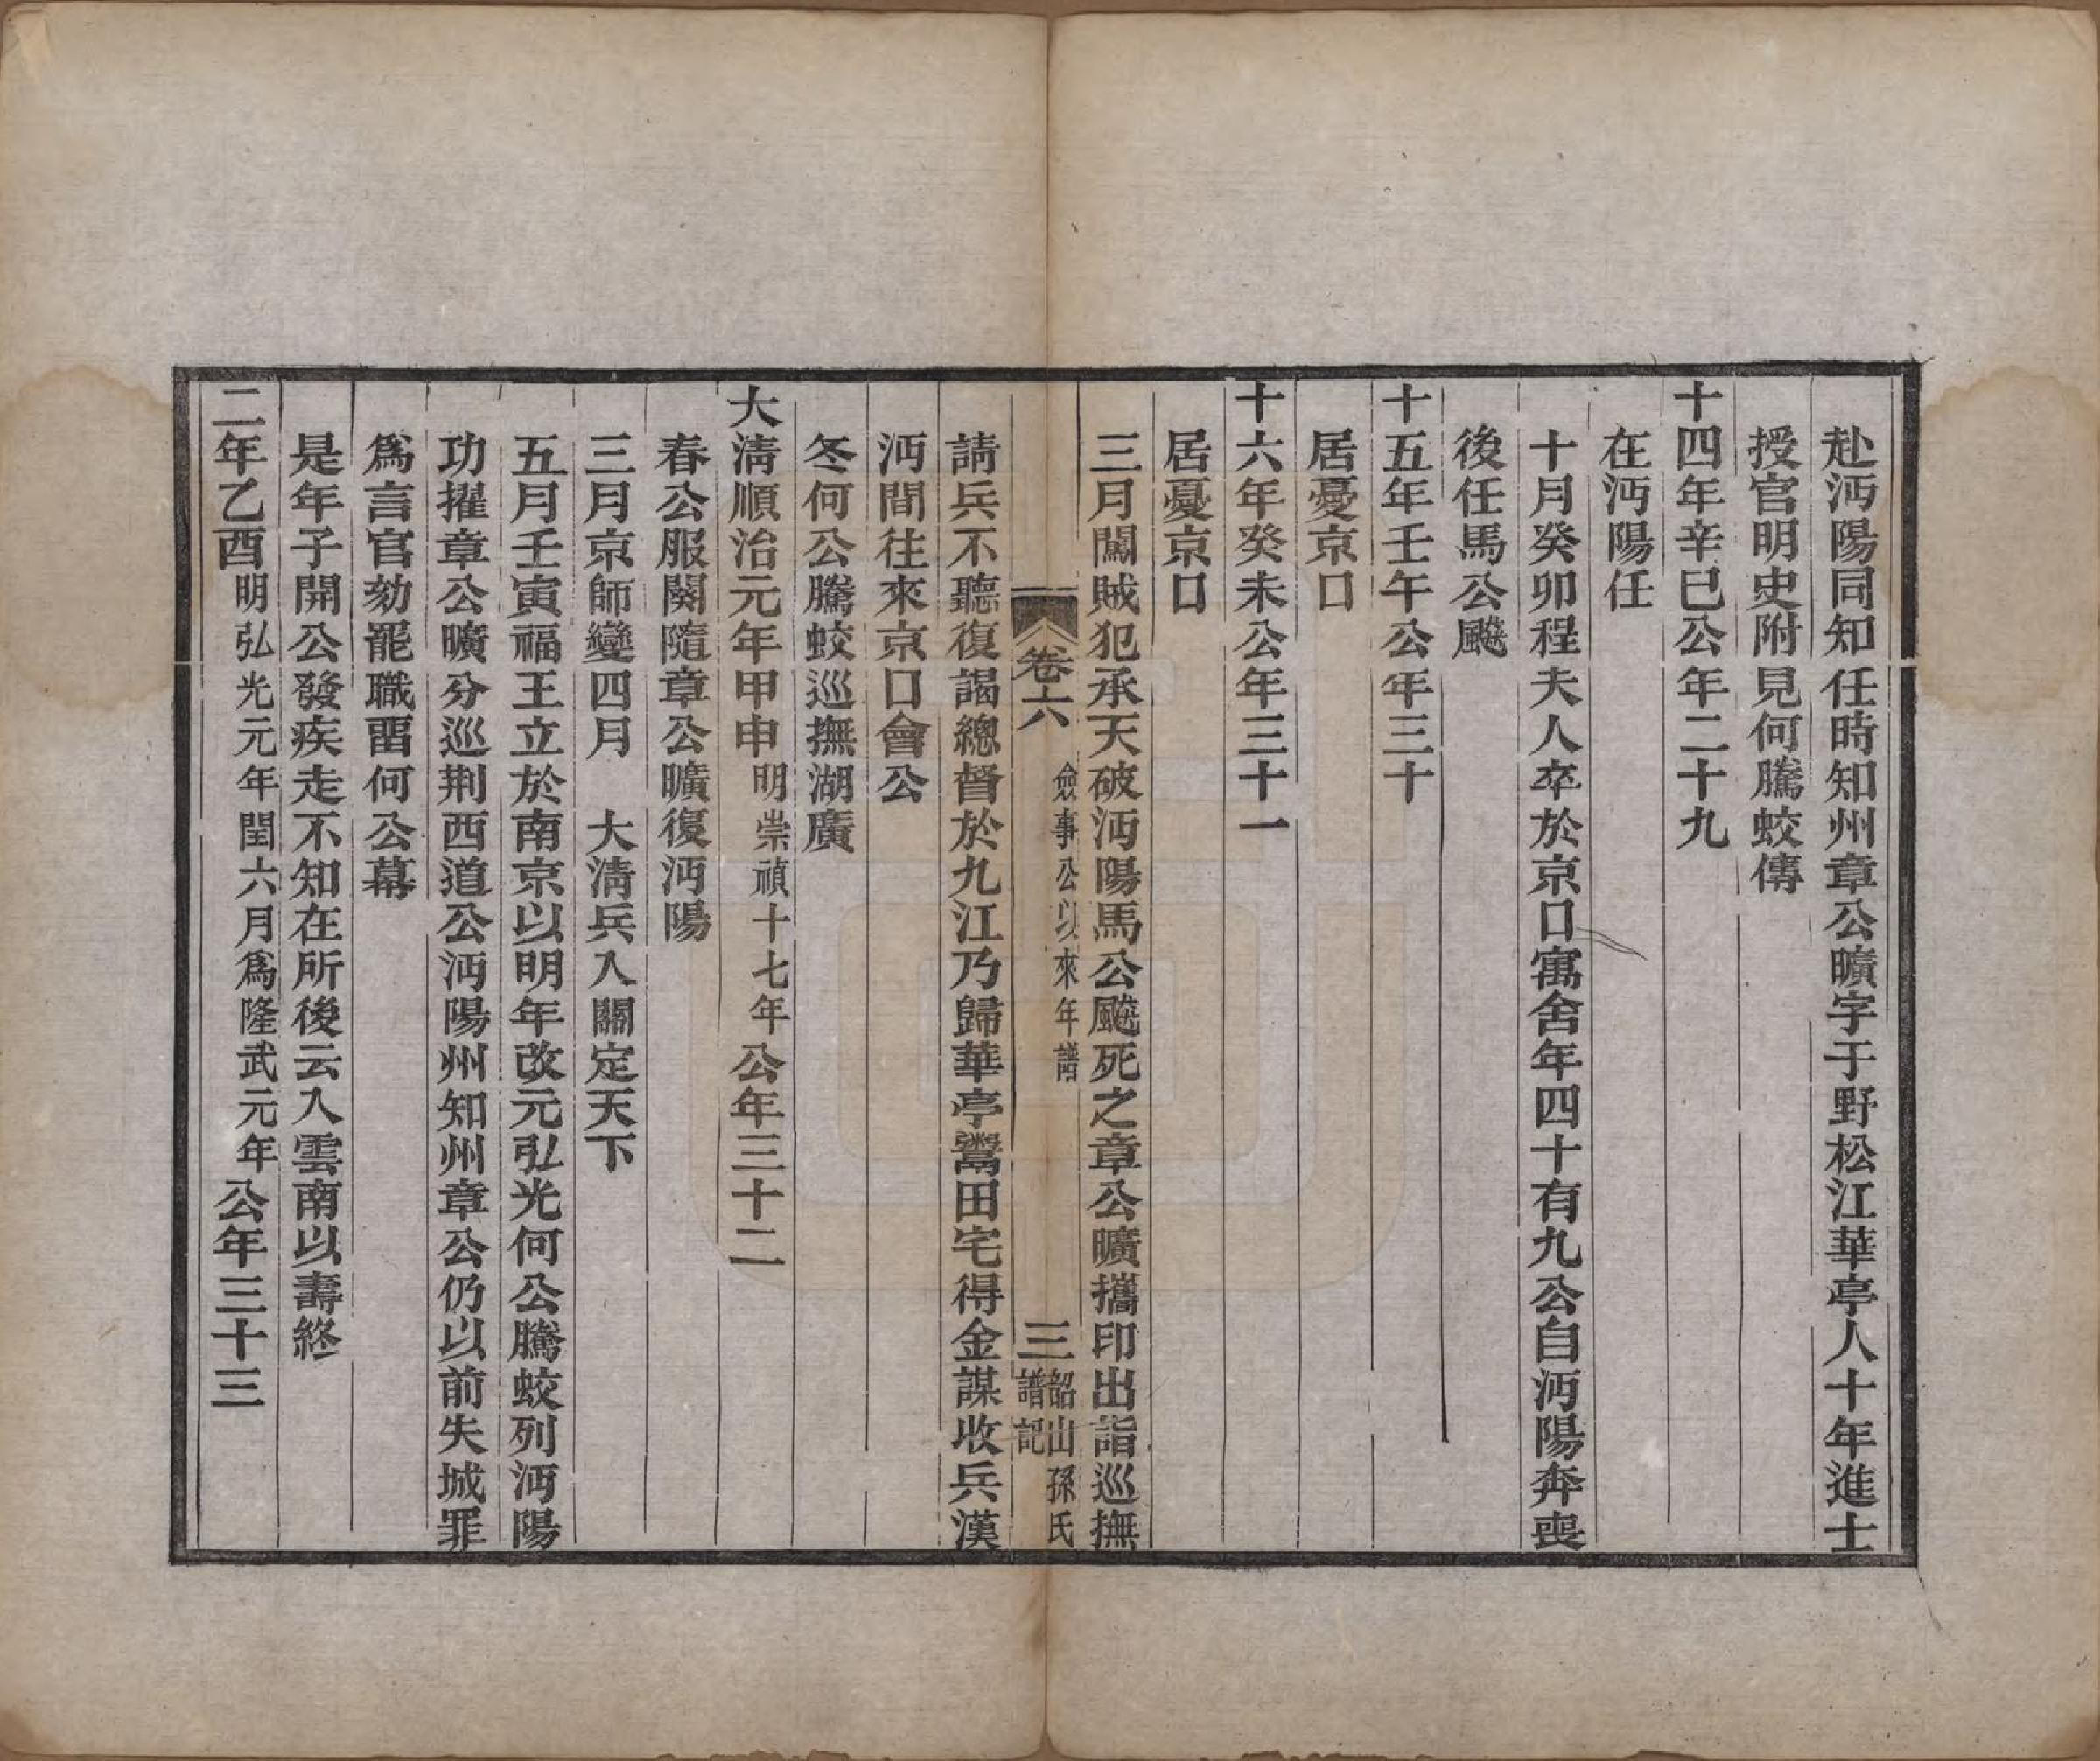 赴沔陽同知任時知州章公曠字于野松江華亭人十年進士
授官明史附見何騰蛟傳
十四年辛巳公年二十九
在沔陽任
十月癸卯程夫人卒於京口寓舍年四十有九公自沔陽奔喪
後任馬公飈
十五年壬午公年三十
居憂京口
十六年癸未公年三十一
居憂京口
三月闖賊犯承天破沔陽馬公飈死之章公曠攜印出詣巡撫
卷六 僉事公以來年譜 三 韶山孫氏譜記
請兵不聽復謁總督於九江乃歸華亭鬻田宅得金謀收兵漢
沔間往來京口會公
冬何公騰蛟巡撫湖廣
大清順治元年甲申明崇禎十七年公年三十二
春公服闋隨章公曠復沔陽
三月京師變四月 大清兵入關定天下
五月壬寅福王立於南京以明年改元弘光何公騰蛟列沔陽
功擢章公曠分巡荆西道公沔陽州知州章公仍以前失城罪
爲言官劾罷職畱何公幕
是年子開公發疾走不知在所後云入雲南以壽終
二年乙酉明弘光元年閏六月爲隆武元年公年三十三